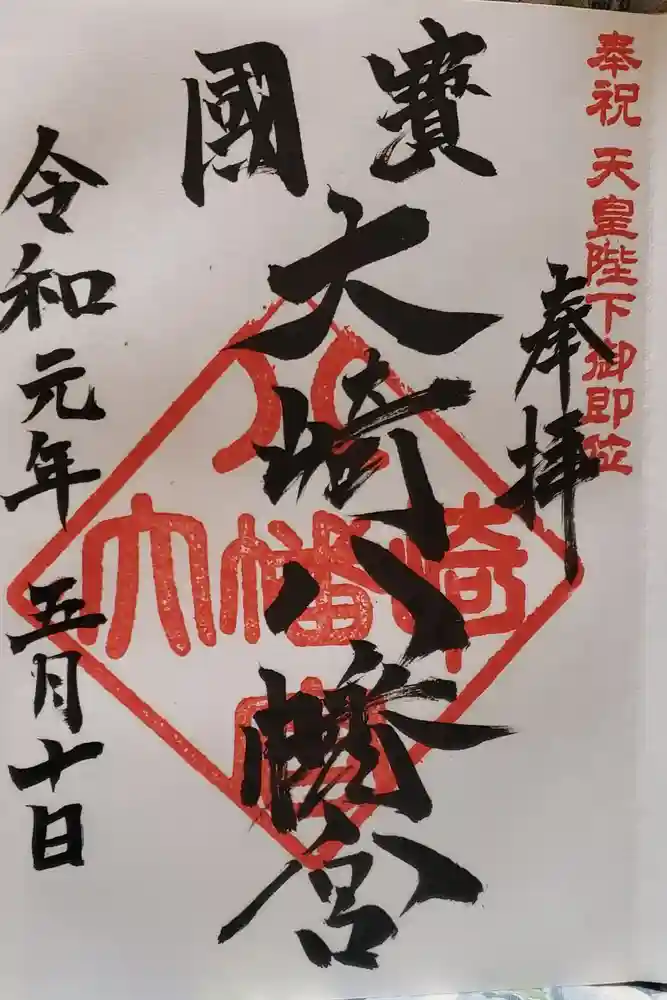 奉祝 天皇陛下御即位
奉拝
國寶
大崎八幡宮
大崎八幡宮
令和元年 五月十日